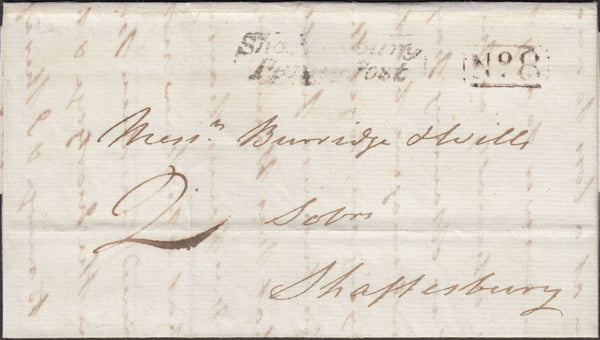 Shaftesbury No 8
Penny Post
Messrs Burridge & Wills
2 Solrs
Shaftesbury